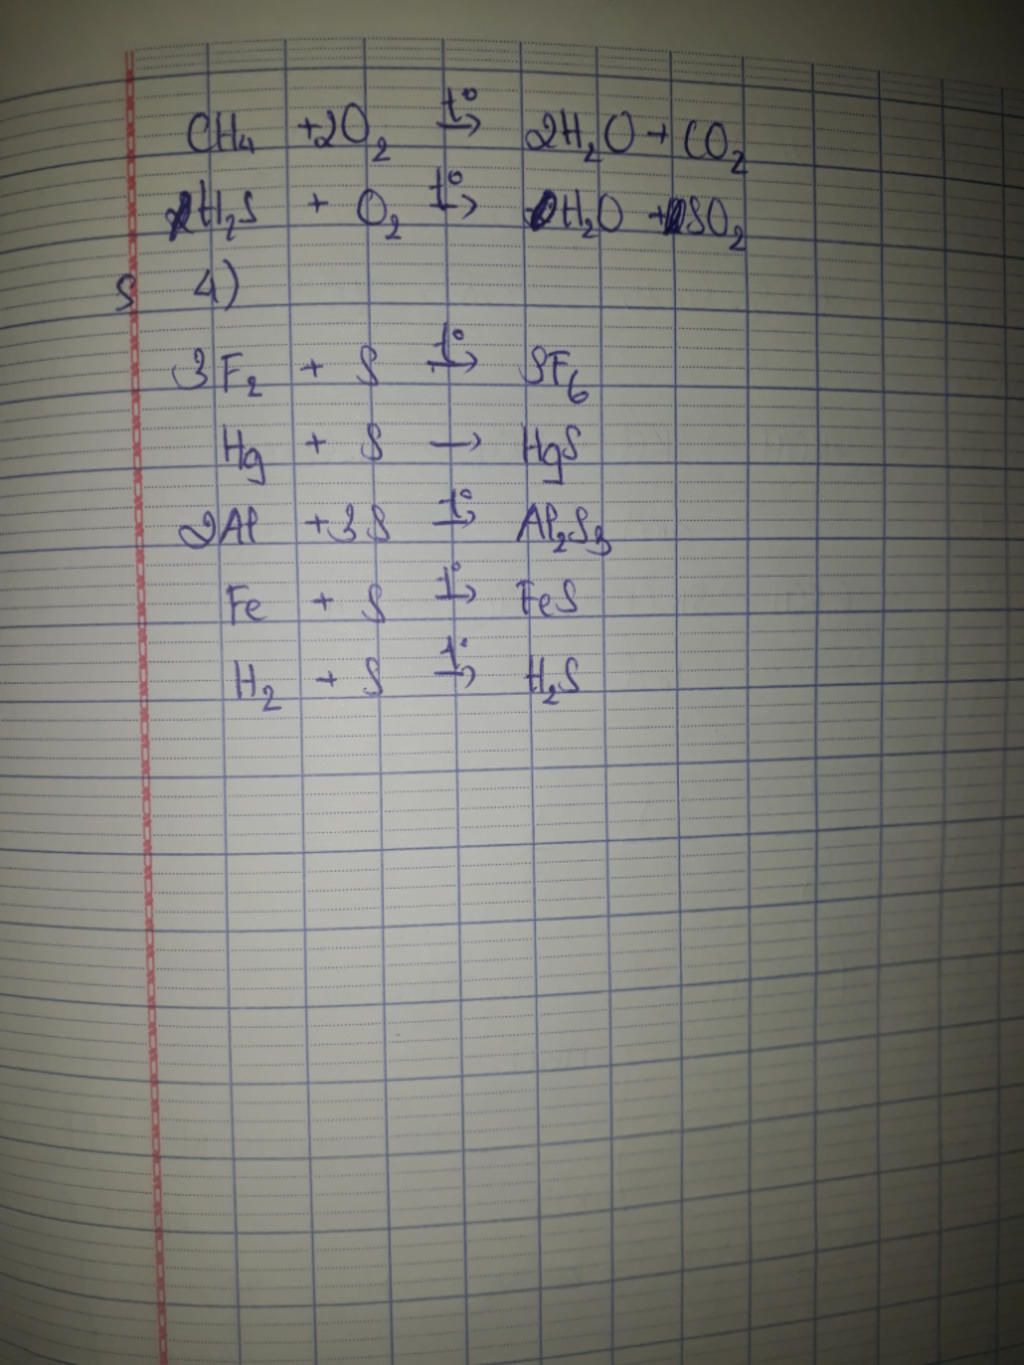 CH₄ + 2O₂ t°→ 2H₂O + CO₂
H₂S + O₂ t°→ H₂O + SO₂
S 4)
3F₂ + S t°→ SF₆
Hg + S → HgS
2Al + 3S t°→ Al₂S₃
Fe + S t°→ FeS
H₂ + S t°→ H₂S